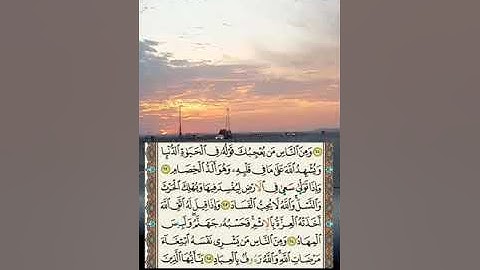 وَمِنَ ٱلنَّاسِ مَن يُعْجِبُكَ قَوْلُهُۥ فِى ٱلْحَيَوٰةِ ٱلدُّنْيَا
وَيُشْهِدُ ٱللَّهَ عَلَىٰ مَا فِى قَلْبِهِۦ وَهُوَ أَلَدُّ ٱلْخِصَامِ
وَإِذَا تَوَلَّىٰ سَعَىٰ فِى ٱلْأَرْضِ لِيُفْسِدَ فِيهَا وَيُهْلِكَ ٱلْحَرْثَ
وَٱلنَّسْلَ وَٱللَّهُ لَا يُحِبُّ ٱلْفَسَادَ وَإِذَا قِيلَ لَهُ ٱتَّقِ ٱللَّهَ
أَخَذَتْهُ ٱلْعِزَّةُ بِٱلْإِثْمِ فَحَسْبُهُۥ جَهَنَّمُ وَلَبِئْسَ
ٱلْمِهَادُ وَمِنَ ٱلنَّاسِ مَن يَشْرِى نَفْسَهُ ٱبْتِغَآءَ
مَرْضَاتِ ٱللَّهِ وَٱللَّهُ رَءُوفٌۢ بِٱلْعِبَادِ يَٰٓأَيُّهَا ٱلَّذِينَ